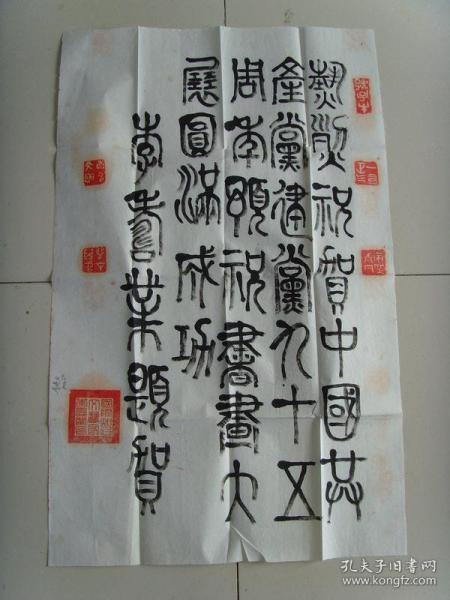 熱烈祝賀中國共
產黨建黨九十五
周年預祝書畫大
展圓滿成功
李業題賀
孔夫子旧书网
www.kongfz.com